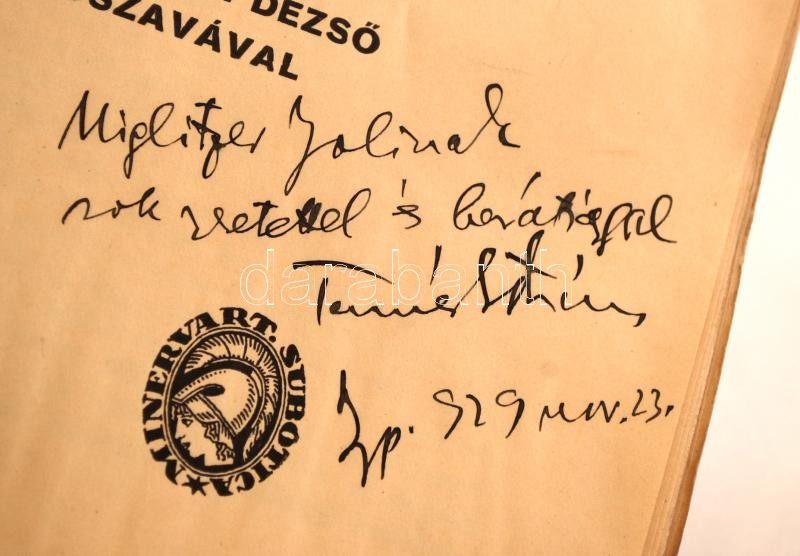 DEZSŐ
SZAVÁVAL
Miglitzer Jolinak
sok szeretettel és barátsággal
Tamás István
Bp. 929 nov. 23.
MINERVA R.T. SUBOTICA
darabanth